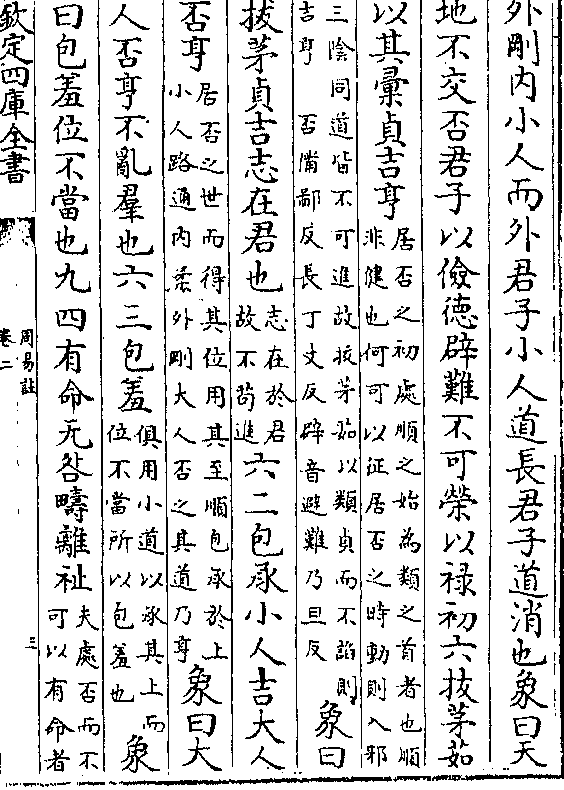 外剛内小人而外君子小人道長君子道消也象曰天
地不交否君子以儉德辟難不可榮以禄初六拔茅茹
以其彙貞吉亨居否之初處順之始為類之首者也順非健也何可以征居否之時動則入邪
三陰同道皆不可進故拔茅茹以類貞而不諂則吉亨否備鄙反長丁丈反辟音避難乃旦反象曰
拔茅貞吉志在君也志在於君故不茍進六二包承小人吉大人
否亨居否之世而得其位用其至順包承於上小人路通内柔外剛大人否之其道乃亨象曰大
人否亨不亂羣也六三包羞俱用小道以承其上而位不當所以包羞也象
曰包羞位不當也九四有命无咎疇離祉夫處否而不可以有命者
欽定四庫全書
周易註
卷二
三